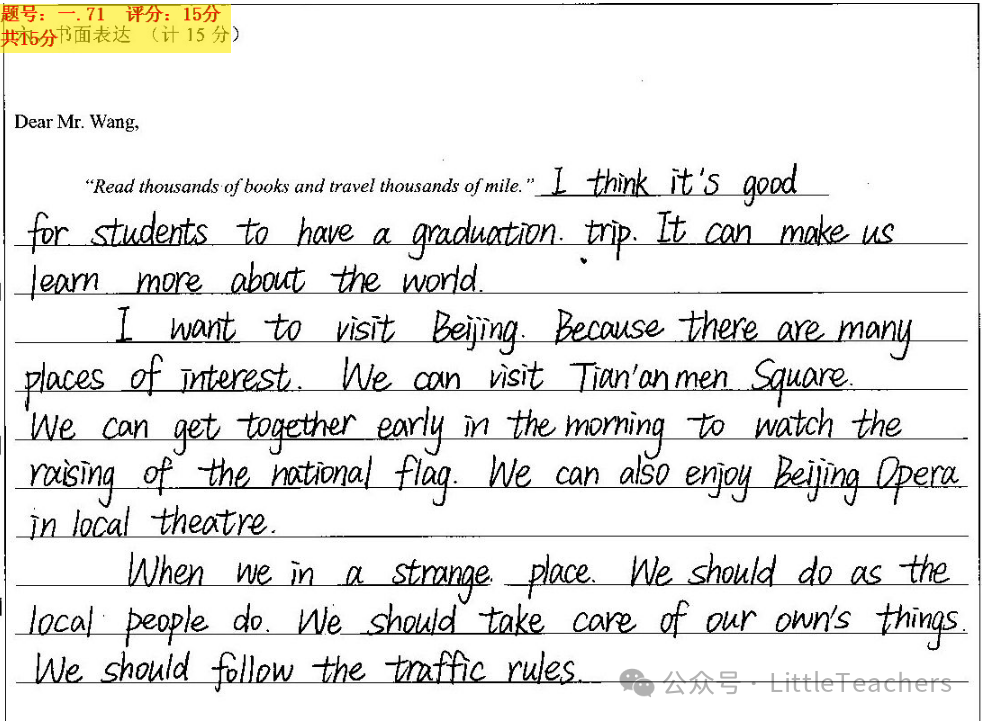 题号：一.71 评分：15分
共15分 书面表达 （计 15 分）
Dear Mr. Wang,
“Read thousands of books and travel thousands of mile.” I think it's good
for students to have a graduation. trip. It can make us
learn more about the world.
I want to visit Beijing. Because there are many
places of interest. We can visit Tian'anmen Square.
We can get together early in the morning to watch the
raising of the national flag. We can also enjoy Beijing Opera
in local theatre.
When we in a strange place. We should do as the
local people do. We should take care of our own's things.
We should follow the traffic rules.
公众号 · LittleTeachers